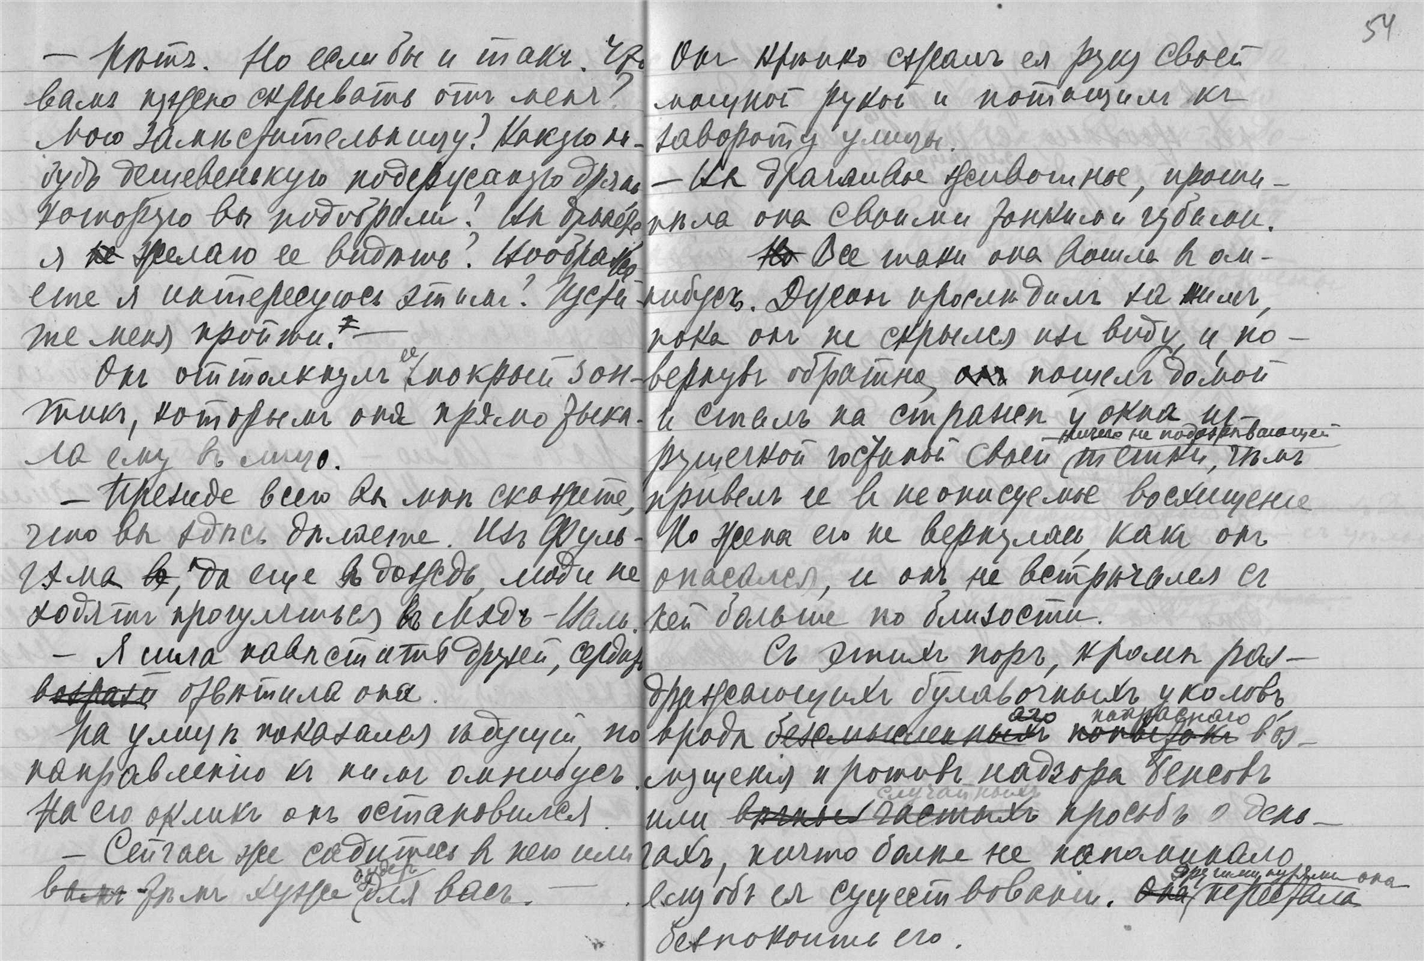 — Нѣтъ. Но если бы и такъ. Что
вамъ нужно скрывать отъ меня?
Мою замѣстительницу? Какую ни-
будь дешевенькую подержанную дрянь
которую вы подобрали? Вы думаете
я не желаю ее видѣть? Вообража
ете я интересуюсь этимъ? Пусти-
те меня пройти. —
Онъ оттолкнулъ ее мокрый зон-
тикъ, которымъ она прямо тыка-
ла ему въ лицо.
— Прежде всего вы мнѣ скажите,
что вы здѣсь дѣлаете. Изъ Фуль-
гэма в, да еще въ дождь, люди не
ходятъ прогуляться въ Мэдъ-Валь.
— Я шла навѣстить друзей, сердито
возрази отвѣтила она.
На улицѣ показался ѣдущій, по
направленію къ нимъ омнибусъ.
На его окликъ онъ остановился.
— Сейчасъ же садитесь в него или
вамъ тѣмъ хуже будетъ для васъ. —
54
Онъ крѣпко сжалъ ея руку своей
мощной рукой и потащилъ къ
завороту улицы.
— Вы драчливое животное, проши-
пѣла она своими тонкими губами.
Но Все таки она вошла в ом-
нибусъ. Дусанъ прослѣдилъ за нимъ,
пока онъ не скрылся изъ виду, и, по-
вернувъ обратно, онъ пошелъ домой
и сталъ на стражѣ у окна ш-
ничего не подозрѣвающей
рушечной гостиной своей тетки, чѣмъ
привелъ ее в неописуемое восхищеніе
Но жена его не вернулась, какъ онъ
опасался, и онъ не встрѣчался съ
ней больше по близости.
Съ этихъ поръ, кромѣ раз-
дражающихъ булавочныхъ уколовъ,
аго напраснаго
вродѣ безсмысленныхъ попытокъ воз-
мущенія противъ надзора Бенсовъ
случайныхъ
или вѣчныхъ частыхъ просьбъ о день-
гахъ, ничто болѣе не напоминало
ему объ ея существованіи. Она перестала
безпокоить его.